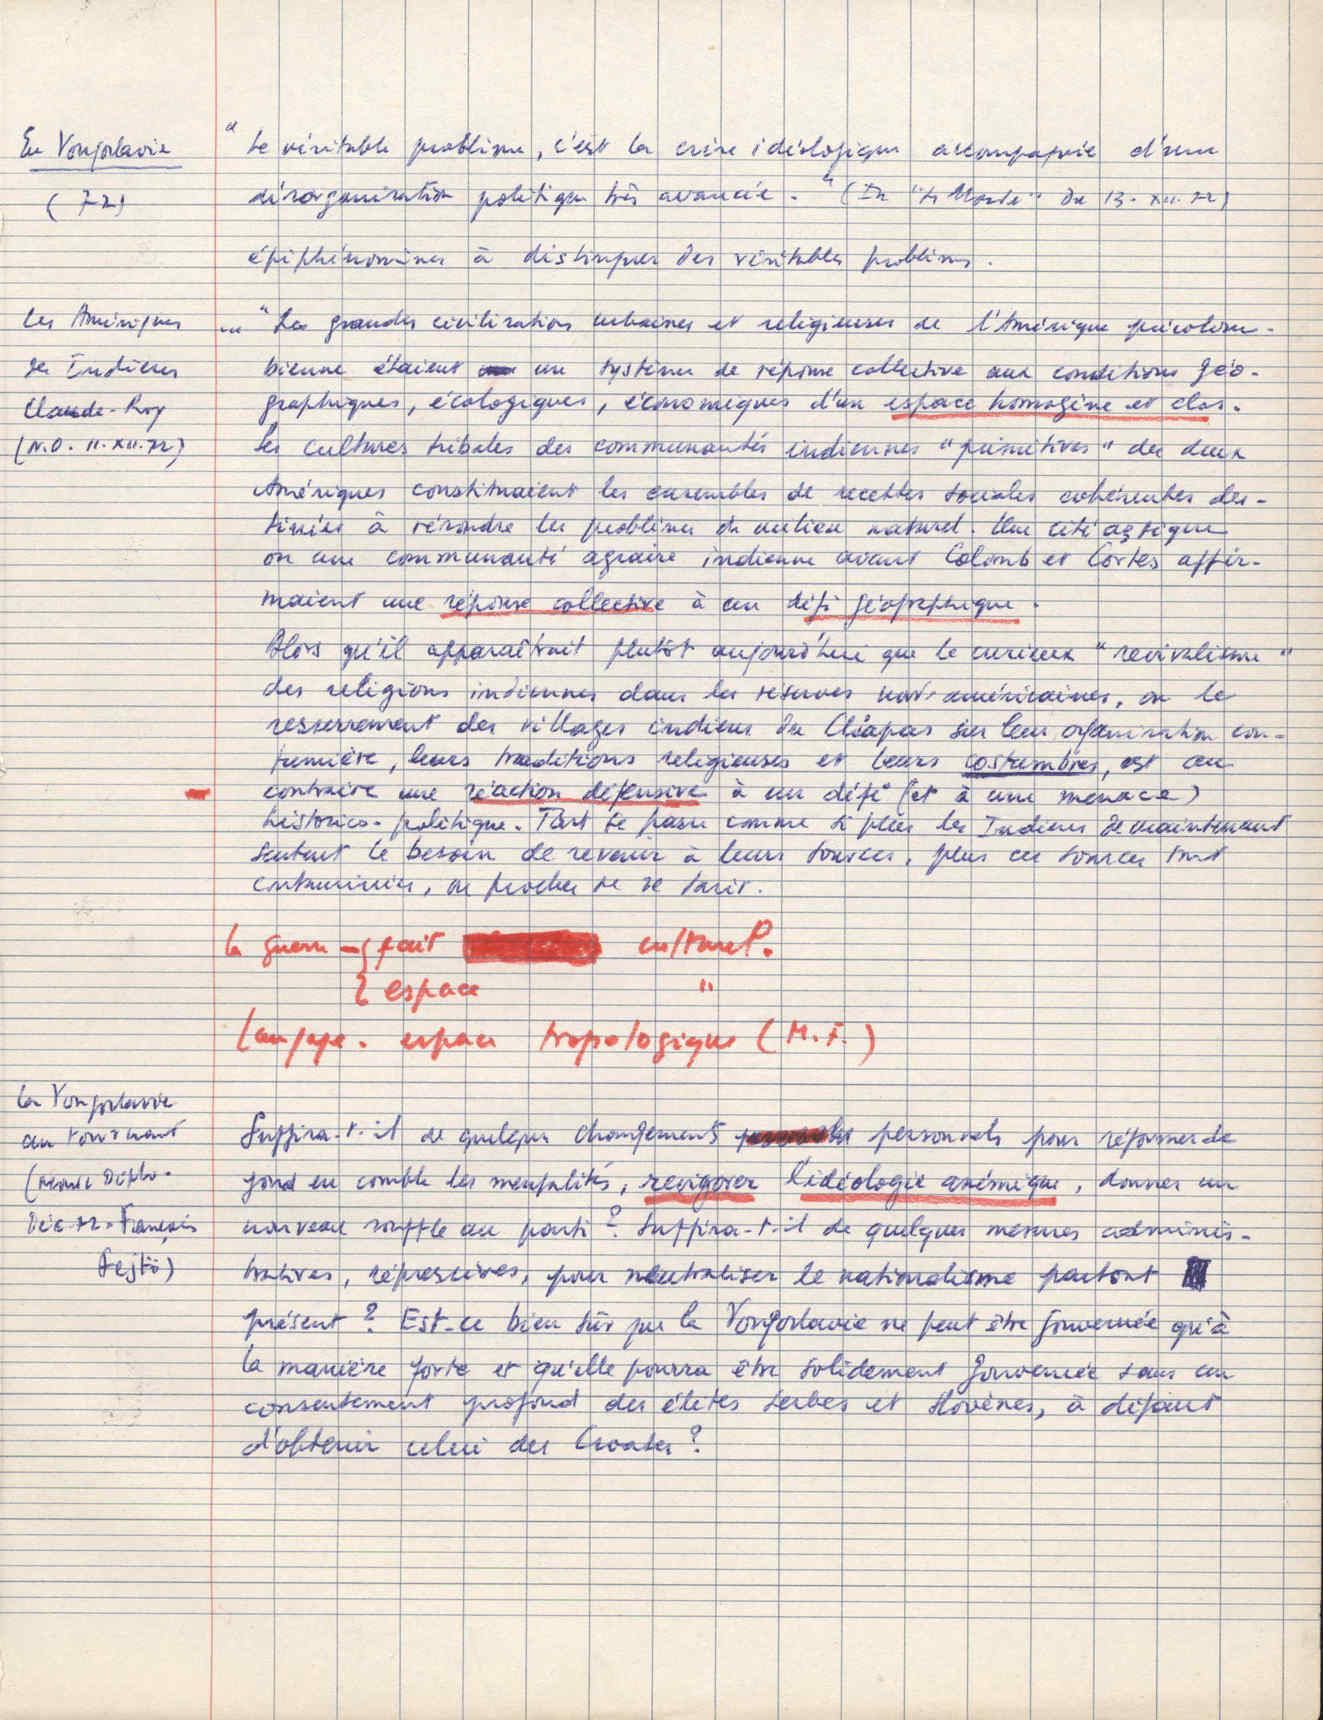 En Yougoslavie
(72)
" Le véritable problème, c'est la crise idéologique accompagnée d'une
désorganisation politique très avancée. " (In "Le Monde" du 13.XII.72)
épiphénomènes à distinguer des véritables problèmes.
Les Amériques
des Indiens
Claude-Roy
(N.O. 11.XII.72)
... " Les grandes civilisations urbaines et religieuses de l'Amérique précolom-
bienne étaient un système de réponse collective aux conditions géo-
graphiques, écologiques, économiques d'un espace homogène et clos.
Les cultures tribales des communautés indiennes "primitives" des deux
Amériques constituaient les ensembles de recettes sociales cohérentes des-
tinées à résoudre les problèmes du milieu naturel. Une cité aztèque
ou une communauté agraire indienne avant Colomb et Cortès affir-
maient une réponse collective à un défi géographique.
Alors qu'il apparaîtrait plutôt aujourd'hui que le curieux "revivalisme"
des religions indiennes dans les réserves nord-américaines, ou le
resserrement des villages indiens du Chiapas sur leur organisation cou-
tumière, leurs traditions religieuses et leurs costumbres, est au
contraire une réaction défensive à un défi (et à une menace)
historico-politique. Tout se passe comme si plus les Indiens de maintenant
sentent le besoin de revenir à leurs sources, plus ces sources sont
contaminées, ou proches de se tarir.
la guerre - { fait culturel.
{ espace "
Langage. espace tropologique (M.F.)
La Yougoslavie
au tournant
(Monde Diplo.
Déc. 72. François
Fejtö)
Suffira-t-il de quelques changements personnels pour réformer de
fond en comble les mentalités, revigorer l'idéologie anémique, donner un
nouveau souffle au parti ? Suffira-t-il de quelques mesures adminis-
tratives, répressives, pour neutraliser le nationalisme partout
présent ? Est-ce bien sûr que la Yougoslavie ne peut être gouvernée qu'à
la manière forte et qu'elle pourra être solidement gouvernée sans un
consentement profond des élites serbes et slovènes, à défaut
d'obtenir celui des Croates ?